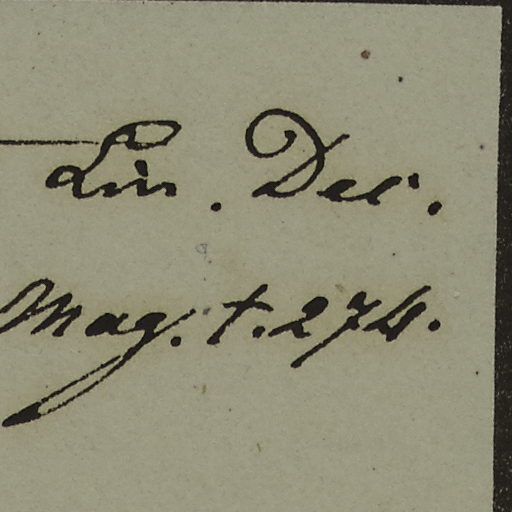 Lin. Dec.
Mag. t. 274.